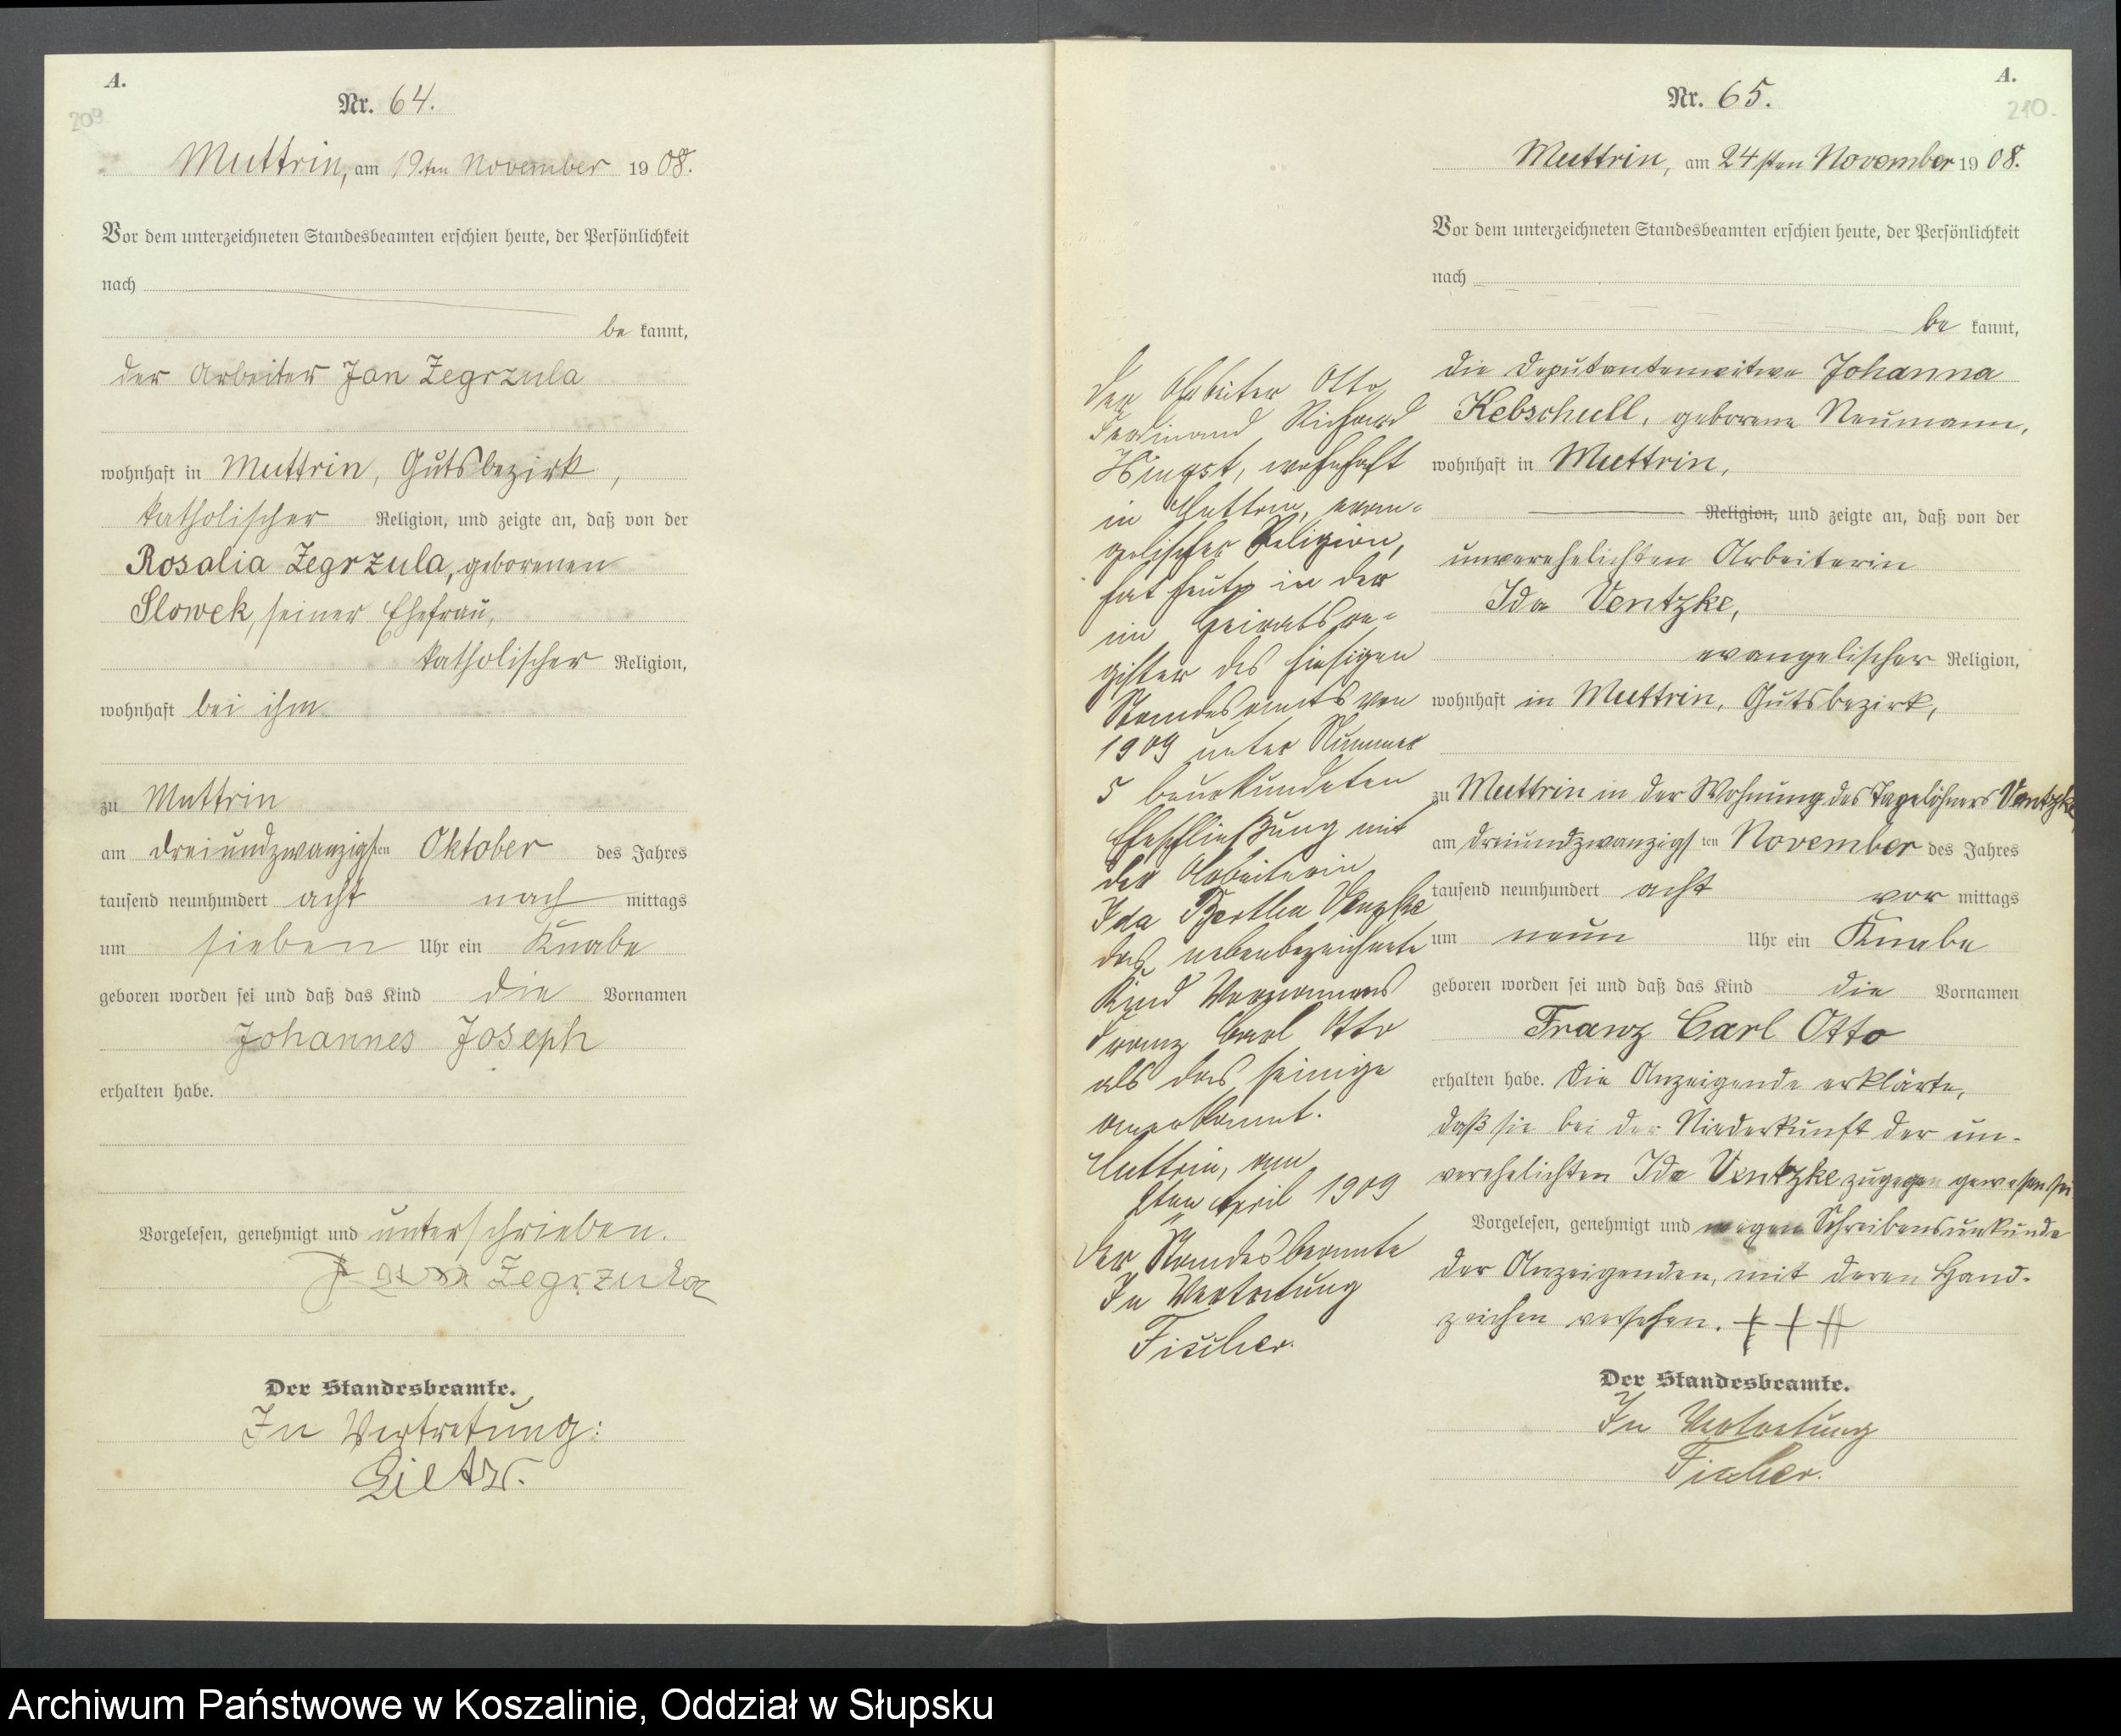 A.
209.
Nr. 64.
Muttrin, am 19ten November 1908.
Vor dem unterzeichneten Standesbeamten erschien heute, der Persönlichkeit
nach
be kannt,
der Arbeiter Jan Zegrzula
wohnhaft in Muttrin, Gutsbezirk,
katholischer Religion, und zeigte an, daß von der
Rosalia Zegrzula, geborenen
Slowek, seiner Ehefrau,
katholischer Religion,
wohnhaft bei ihm
zu Muttrin
am dreiundzwanzigsten Oktober des Jahres
tausend neunhundert acht nach mittags
um sieben Uhr ein Knabe
geboren worden sei und daß das Kind die Vornamen
Johannes Joseph
erhalten habe.
Vorgelesen, genehmigt und unterschrieben.
Jan Zegrzula
Der Standesbeamte.
In Vertretung:
Lietz.
A.
210.
Nr. 65.
Muttrin, am 24sten November 1908.
Vor dem unterzeichneten Standesbeamten erschien heute, der Persönlichkeit
nach
be kannt,
die Deputantenwitwe Johanna
Kebschull, geborene Neumann,
wohnhaft in Muttrin,
Religion, und zeigte an, daß von der
unverehelichten Arbeiterin
Ida Ventzke,
evangelischer Religion,
wohnhaft in Muttrin, Gutsbezirk,
zu Muttrin in der Wohnung des Tagelöhners Ventzke
am dreiundzwanzigsten November des Jahres
tausend neunhundert acht vor mittags
um neun Uhr ein Knabe
geboren worden sei und daß das Kind die Vornamen
Franz Carl Otto
erhalten habe. Die Anzeigende erklärte,
daß sie bei der Niederkunft der un-
verehelichten Ida Ventzke zugegen gewesen sei
Vorgelesen, genehmigt und wegen Schreibensunkunde
der Anzeigenden, mit deren Hand-
zeichen versehen. + + +
Der Standesbeamte.
In Vertretung
Fischer.
Der Arbeiter Otto
Ferdinand Richard
Hingst, wohnhaft
in Muttrin, evan-
gelischer Religion,
hat heute in der
im Heiratsre-
gister des hiesigen
Standesamts von
1909 unter Nummer
5 beurkundeten
Eheschließung mit
der Arbeiterin
Ida Bertha Venzke
das nebenbezeichnete
Kind Vornamens
Franz Carl Otto
als das seinige
anerkannt.
Muttrin, am
ten April 1909
Der Standesbeamte
In Vertretung
Fischer.
Archiwum Państwowe w Koszalinie, Oddział w Słupsku